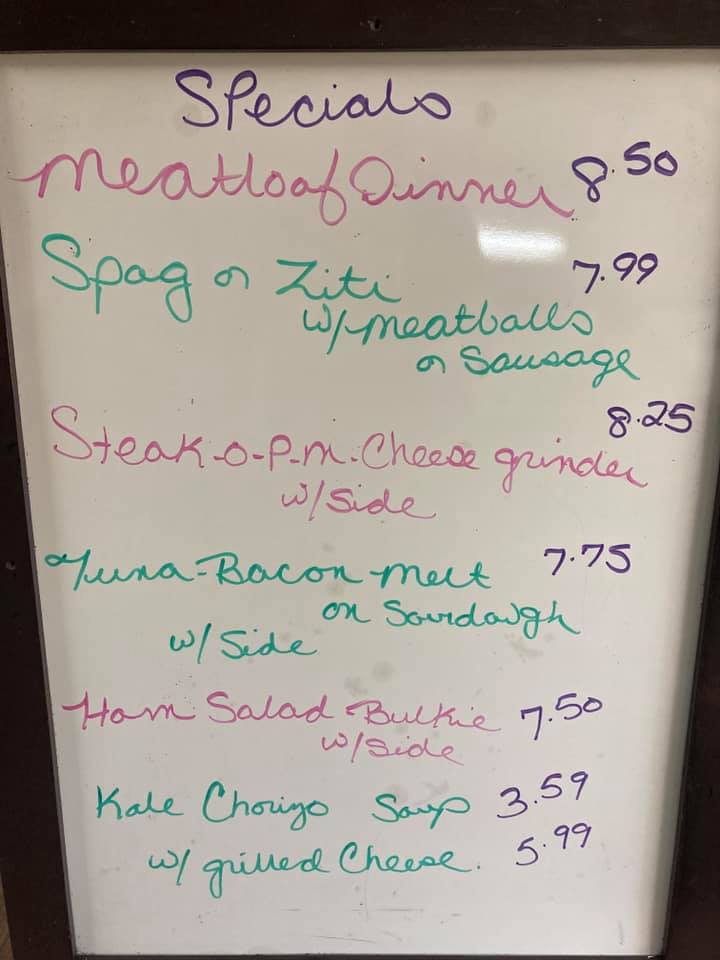 Specials
Meatloaf Dinner 8.50
Spag or Ziti 7.99
w/meatballs
or Sausage
8.25
Steak-o-p-m-Cheese grinder
w/Side
Tuna-Bacon melt 7.75
on Sourdough
w/ Side
Ham Salad Bulkie 7.50
w/side
Kale Chorizo Soup 3.59
w/ grilled Cheese. 5.99